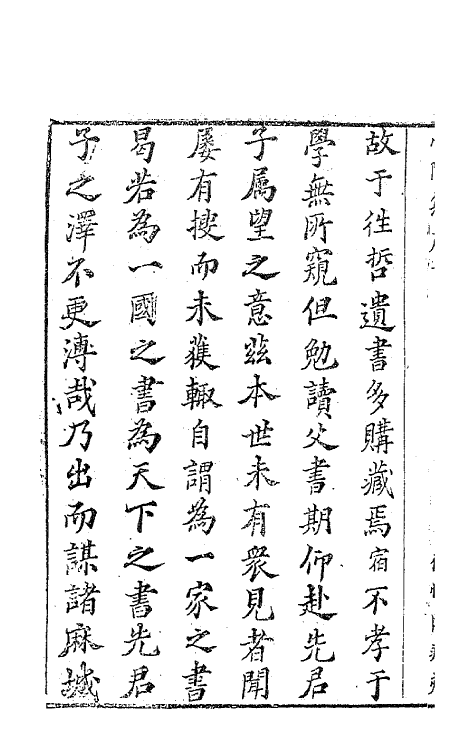 故于徃哲遺書多購藏焉宿不孝于
學無所窺但勉讀父書期仰赴先君
子属望之意玆本世未有衆見者聞
屡有搜而未獲輙自謂為一家之書
曷若為一國之書為天下之書先君
子之澤不更溥哉乃出而謀諸麻城